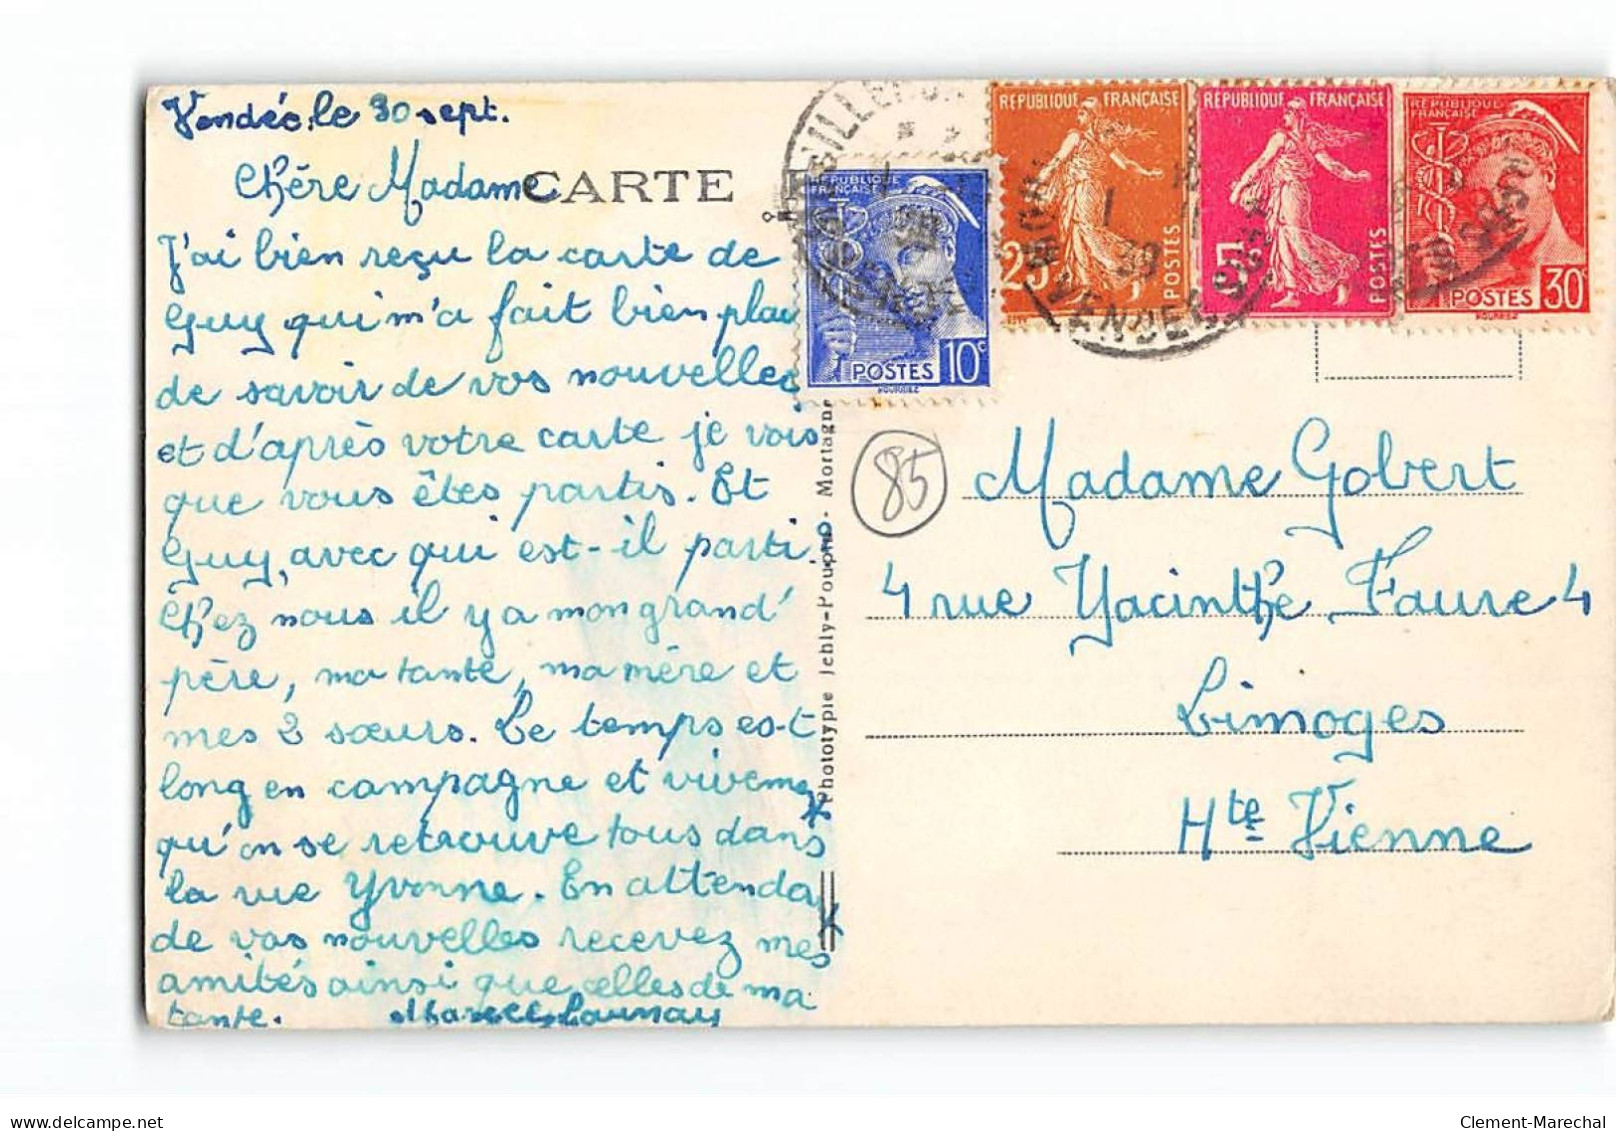 Vendée, le 30 sept.
Chère Madame
J'ai bien reçu la carte de
Guy qui m'a fait bien plai
de savoir de vos nouvelles
et d'après votre carte je vois
que vous êtes partis. Et
Guy, avec qui est-il parti.
Chez nous il y a mon grand'
père, ma tante, ma mère et
mes 2 sœurs. Le temps est
long en campagne et viveme
qu'on se retrouve tous dans
la vie Yvonne. En attenda
de vos nouvelles recevez mes
amitiés ainsi que celles de ma
tante. Marcel Launay
CARTE
Phototypie Jehly-Poupin - Mortagne
RÉPUBLIQUE
FRANÇAISE
POSTES 10c
RÉPUBLIQUE FRANÇAISE
25c
POSTES
RÉPUBLIQUE FRANÇAISE
5c
POSTES
RÉPUBLIQUE
FRANÇAISE
POSTES 30c
VENDÉE
1
39
85
Madame Gobert
4 rue Yacinthe Faure 4
Limoges
Hte Vienne
delcampe.net
Clement-Marechal